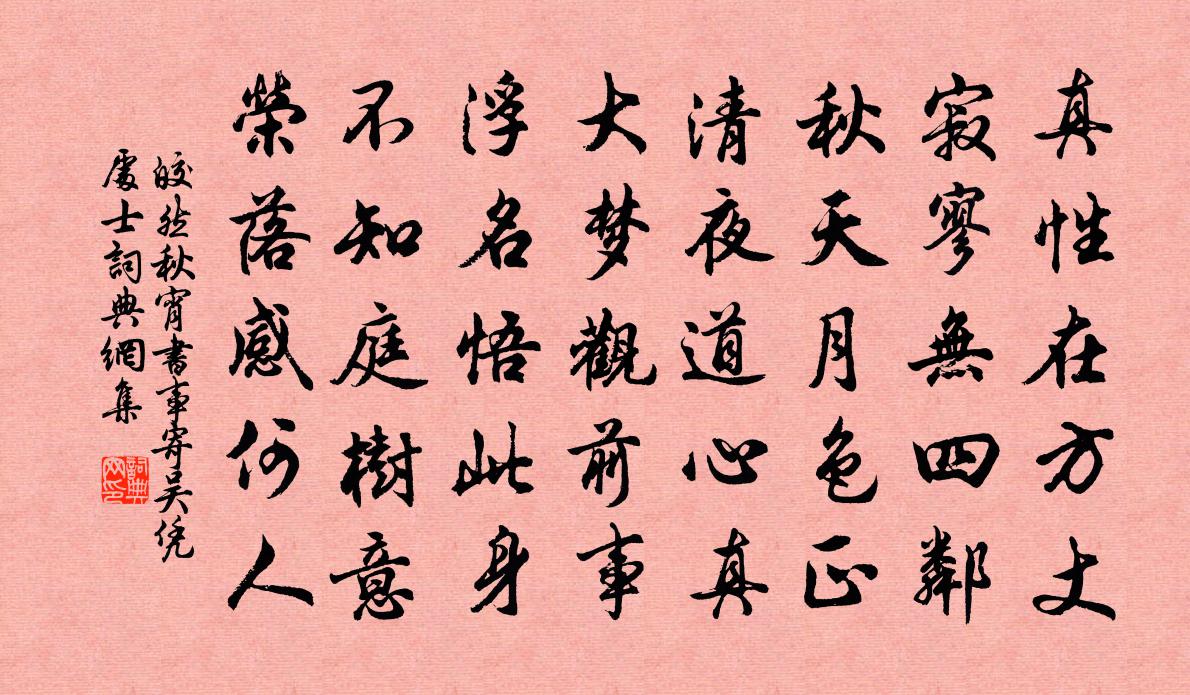 真性在方丈
寂寥無四鄰
秋天月色正
清夜道心真
大梦觀前事
浮名悟此身
不知庭樹意
榮落感何人
皎然秋宵書事寄吴凭
處士詞典網集
詞典
网印